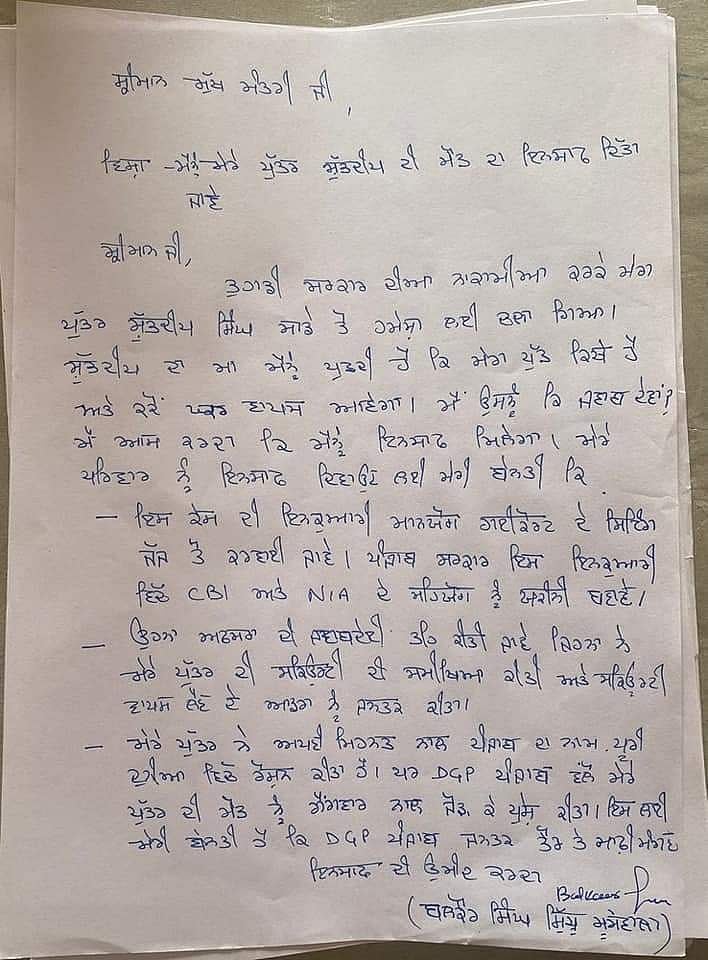 ਸ਼੍ਰੀਮਾਨ ਮੁੱਖ ਮੰਤਰੀ ਜੀ,
ਵਿਸ਼ਾ - ਮੈਨੂੰ ਮੇਰੇ ਪੁੱਤਰ ਸ਼ੁੱਭਦੀਪ ਦੀ ਮੌਤ ਦਾ ਇਨਸਾਫ ਦਿੱਤਾ
ਜਾਵੇ
ਸ਼੍ਰੀਮਾਨ ਜੀ,
ਤੁਹਾਡੀ ਸਰਕਾਰ ਦੀਆ ਨਾਕਾਮੀਆ ਕਰਕੇ ਮੇਰਾ
ਪੁੱਤਰ ਸ਼ੁੱਭਦੀਪ ਸਿੰਘ ਸਾਡੇ ਤੋਂ ਹਮੇਸ਼ਾ ਲਈ ਚਲਾ ਗਿਆ।
ਸ਼ੁੱਭਦੀਪ ਦਾ ਮਾ ਮੈਨੂੰ ਪੁਛਦੀ ਹੈ ਕਿ ਮੇਰਾ ਪੁੱਤ ਕਿਥੇ ਹੈ
ਅਤੇ ਕਦੋਂ ਘਰ ਵਾਪਸ ਆਵੇਗਾ। ਮੈਂ ਉਸਨੂੰ ਕਿ ਜਵਾਬ ਦੇਵਾਂ?
ਮੈਂ ਆਸ ਕਰਦਾ ਕਿ ਮੈਨੂੰ ਇਨਸਾਫ ਮਿਲੇਗਾ। ਮੇਰੇ
ਪਰਿਵਾਰ ਨੂੰ ਇਨਸਾਫ ਦਿਵਾਉਣ ਲਈ ਮੇਰੀ ਬੇਨਤੀ ਕਿ
- ਇਸ ਕੇਸ ਦੀ ਇਨਕੁਆਰੀ ਮਾਨਯੋਗ ਹਾਈਕੋਰਟ ਦੇ ਸਿਟਿੰਗ
ਜੱਜ ਤੋਂ ਕਰਵਾਈ ਜਾਵੇ। ਪੰਜਾਬ ਸਰਕਾਰ ਇਸ ਇਨਕੁਆਰੀ
ਵਿੱਚ CBI ਅਤੇ NIA ਦੇ ਸਹਿਯੋਗ ਨੂੰ ਯਕੀਨੀ ਬਣਾਵੇ।
- ਉਹਨਾ ਅਫਸਰਾ ਦੀ ਜਵਾਬਦੇਹੀ ਤਹਿ ਕੀਤੀ ਜਾਵੇ ਜਿਹਨਾ ਨੇ
ਮੇਰੇ ਪੁੱਤਰ ਦੀ ਸਕਿਉਰਟੀ ਦੀ ਸਮੀਖਿਆ ਕੀਤੀ ਅਤੇ ਸਕਿਉਰਟੀ
ਵਾਪਸ ਲੈਣ ਦੇ ਆਡਰਾ ਨੂੰ ਜਨਤਕ ਕੀਤਾ।
- ਮੇਰੇ ਪੁੱਤਰ ਨੇ ਅਪਣੀ ਮਿਹਨਤ ਨਾਲ ਪੰਜਾਬ ਦਾ ਨਾਮ ਪੂਰੀ
ਦੁਨੀਆ ਵਿੱਚ ਰੌਸ਼ਨ ਕੀਤਾ ਹੈ। ਪਰ DGP ਪੰਜਾਬ ਵੱਲੋਂ ਮੇਰੇ
ਪੁੱਤਰ ਦੀ ਮੌਤ ਨੂੰ ਗੈਂਗਵਾਰ ਨਾਲ ਜੋੜ ਕੇ ਪੇਸ਼ ਕੀਤਾ। ਇਸ ਲਈ
ਮੇਰੀ ਬੇਨਤੀ ਹੈ ਕਿ DGP ਪੰਜਾਬ ਜਨਤਕ ਤੌਰ ਤੇ ਮਾਫੀ ਮੰਗਣ
ਇਨਸਾਫ ਦੀ ਉਮੀਦ ਕਰਦਾ
Balkaur
(ਬਲਕੌਰ ਸਿੰਘ ਸਿੱਧੂ ਮੂਸੇਵਾਲਾ)